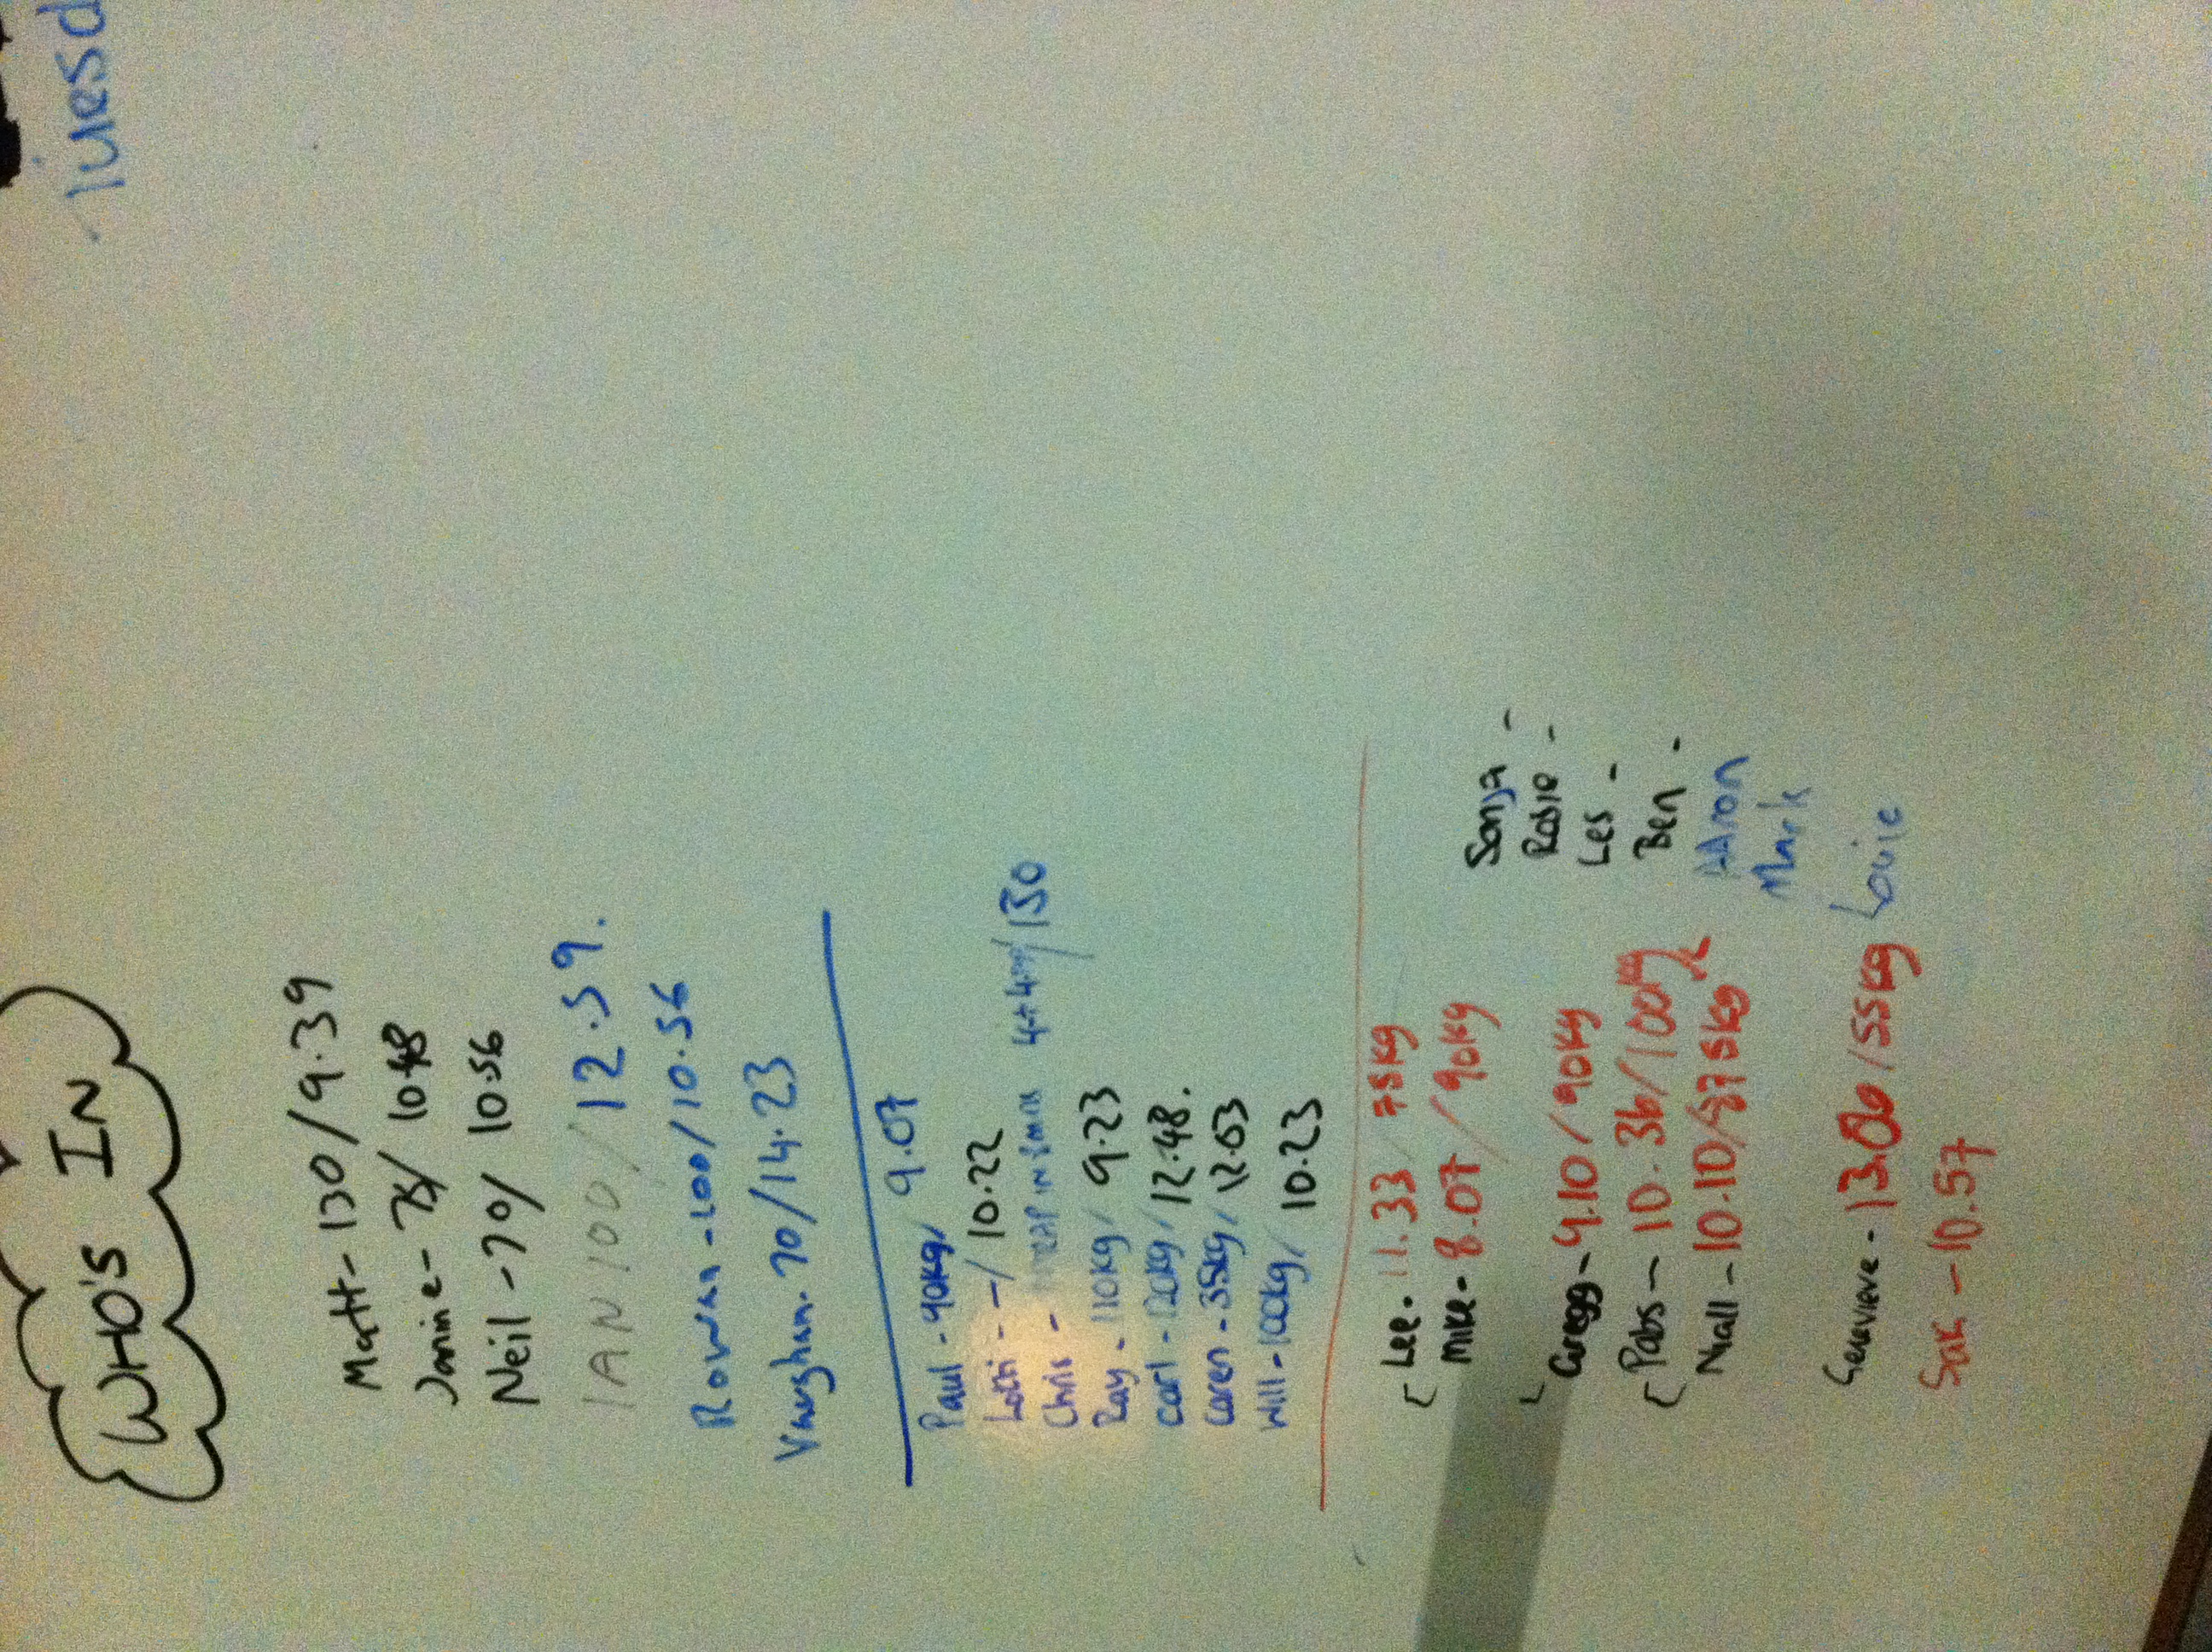 WHO'S IN
Matt - 130 / 9.39
Janine - 75 / 10.48
Neil - 70 / 10.56
IAN 100 / 12.59.
Rowan - 100 / 10.56
Vaughan - 70 / 14.23
Paul - 90kg / 9.07
- - / 10.22
Chris - IN 8min 4+400 / 130
Ray - 110kg / 9.23
Carl - 120kg / 12.48.
Caren - 35kg / 12.03
Will - 100kg / 10.23
Lee - 11.33 / 75kg
Mike - 8.07 / 90kg
Gregg - 9.10 / 90kg
Pabs - 10.36 / 100kg
Niall - 10.10 / 87.5kg
Genevieve - 13.00 / 55kg
Sak - 10.57
Sonja -
Robie -
Les -
Ben -
AAron
Mark
Louie
Tuesd